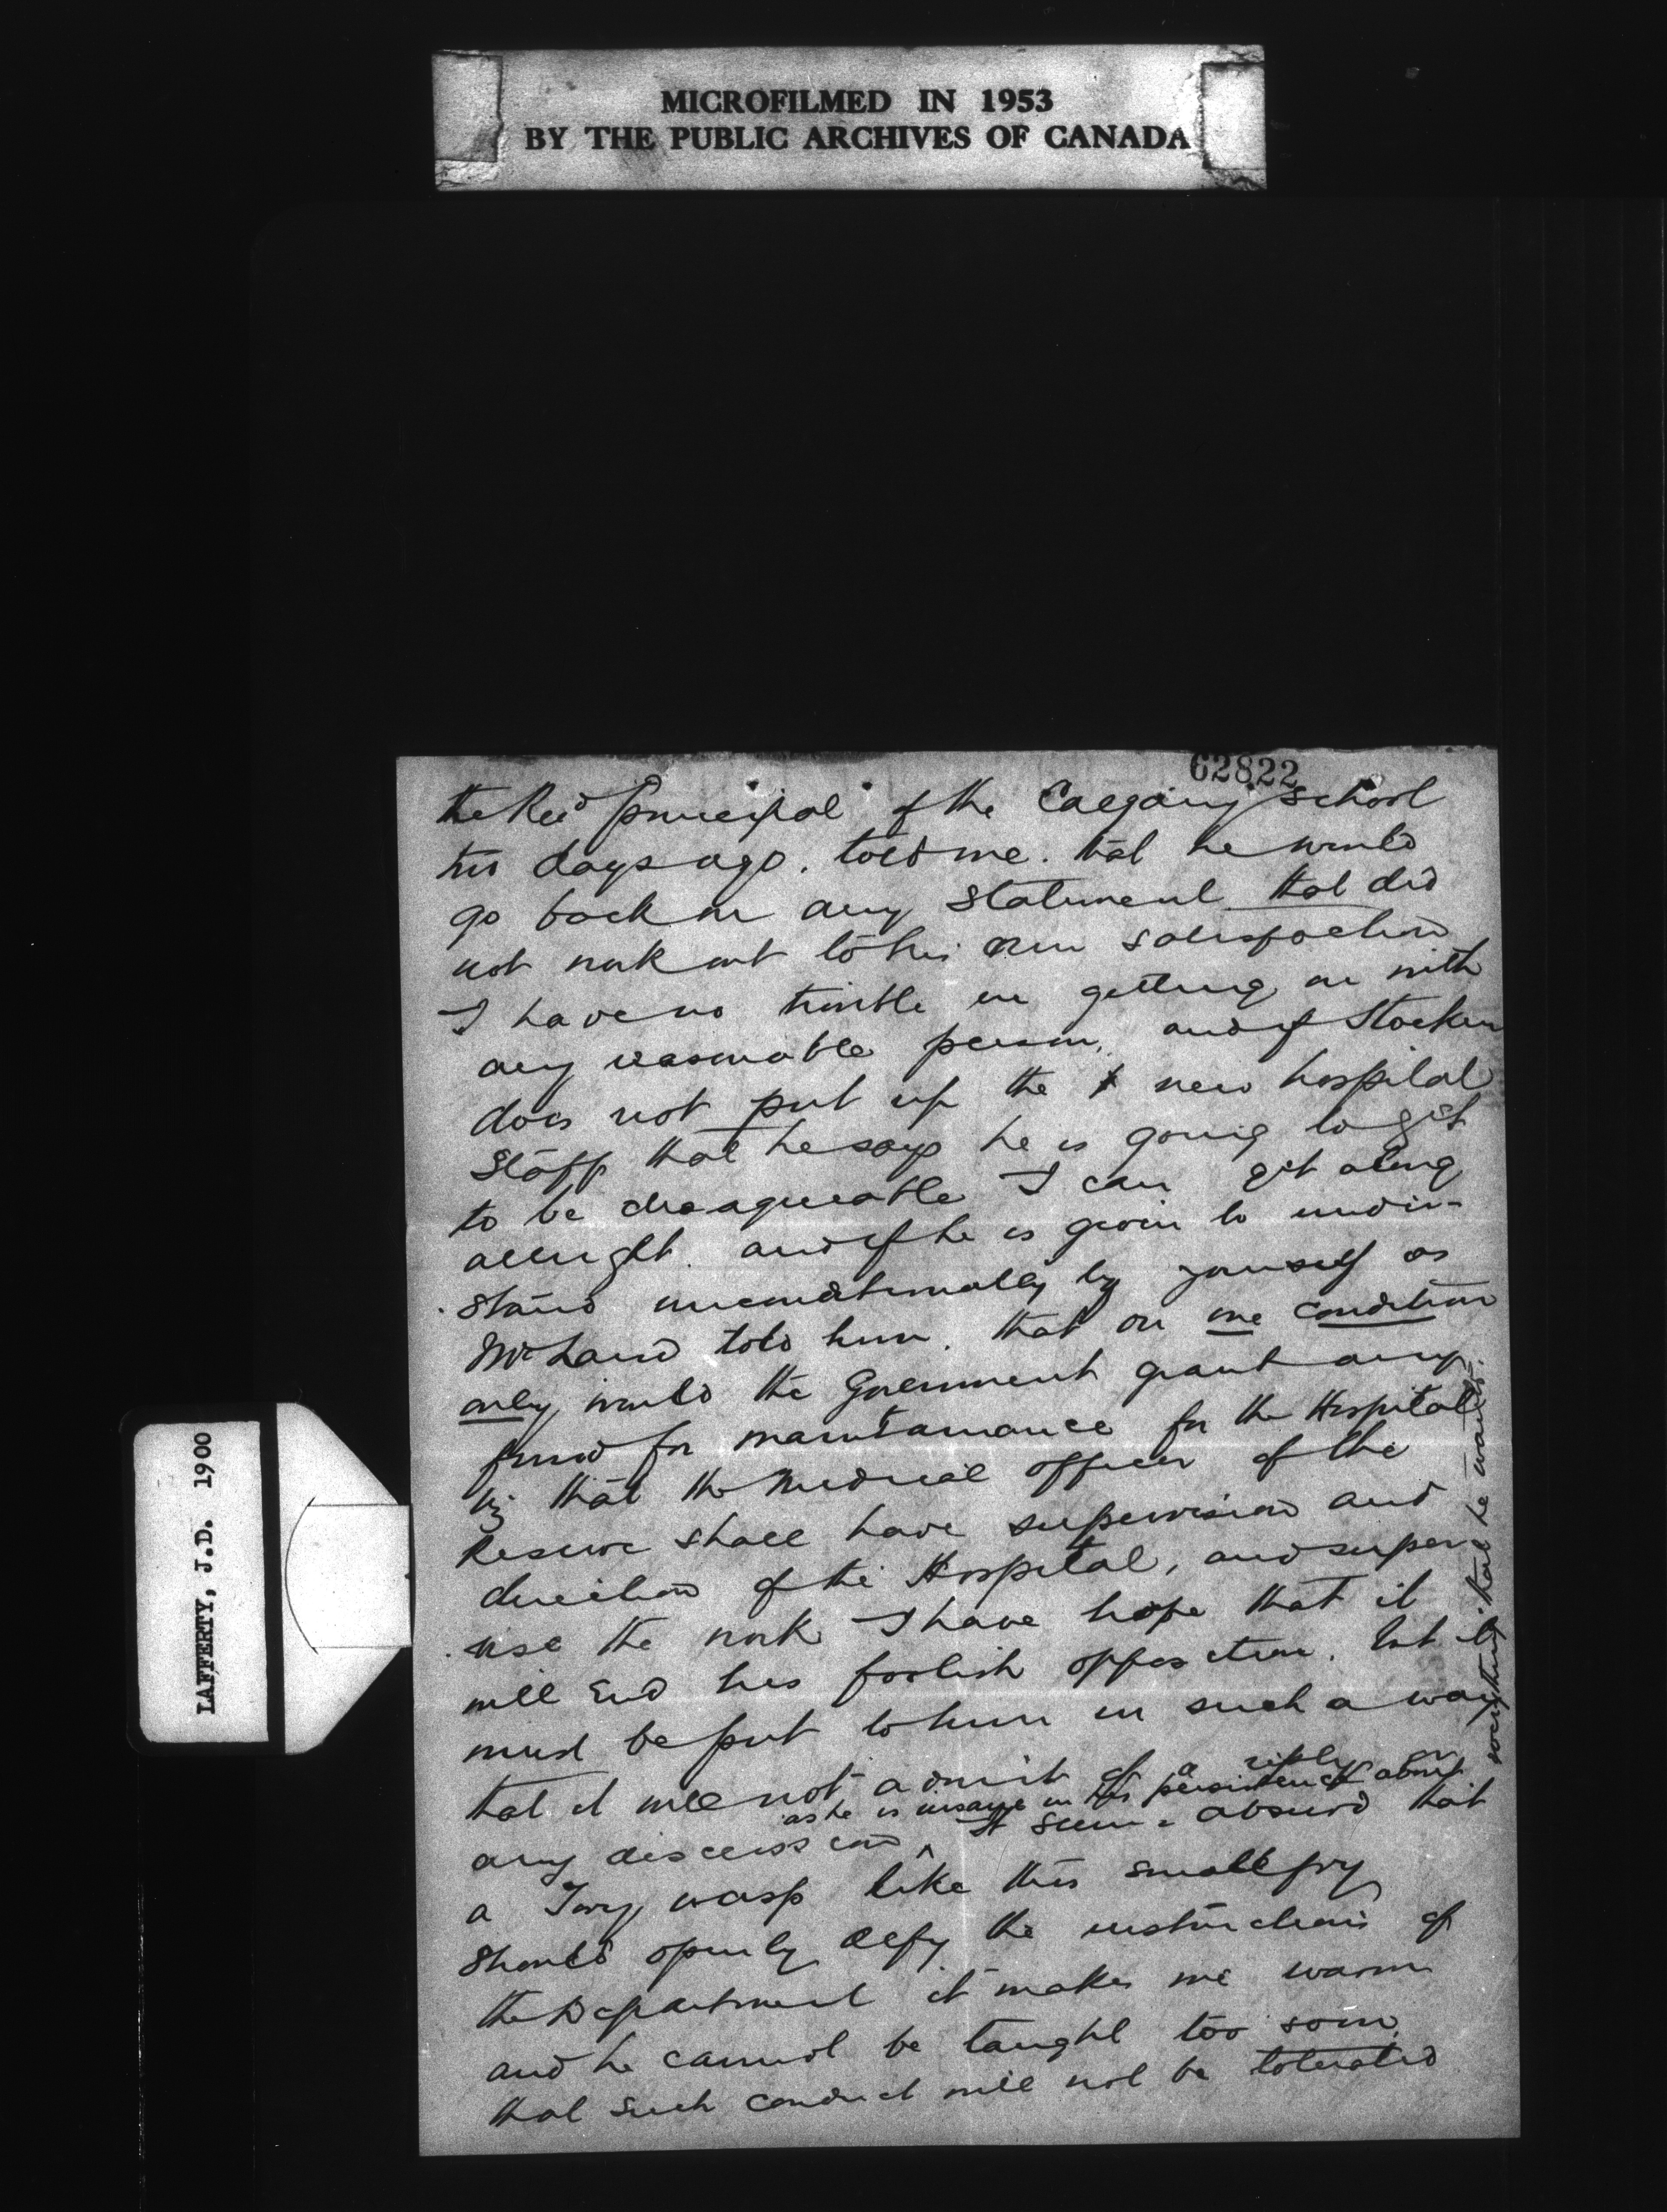 MICROFILMED IN 1953
BY THE PUBLIC ARCHIVES OF CANADA
62822
the Revd Principal of the Calgary School
days ago. told me. that he would
go back on any Statement that did
not work out to his own satisfaction
I have no trouble in getting on with
any reasonable person, and if Stocken
does not put up the new hospital
Staff that he says he is going to get
to be disagreeable I can get along
allright. and if he is given to under-
stand unconditionally by yourself as
McLaird told him. that on one condition
only, would the Government grant any
fund for maintainance for the Hospital
viz that the Medical officer of the
Reserve shall have supervision and
direction of the Hospital, and super
vise the work I have hope that it
will End his foolish opposition. but it
must be put to him in such a way
that it will not admit of a reply or
as he is insane in his persistency about
any discussion It seems absurd that
a Tory wasp like this small fry
should openly defy the instructions of
the Department it makes me warm
and he cannot be taught too soon,
that such conduct will not be tolerated
everything that he wants.
LAFFERTY, J.D. 1900